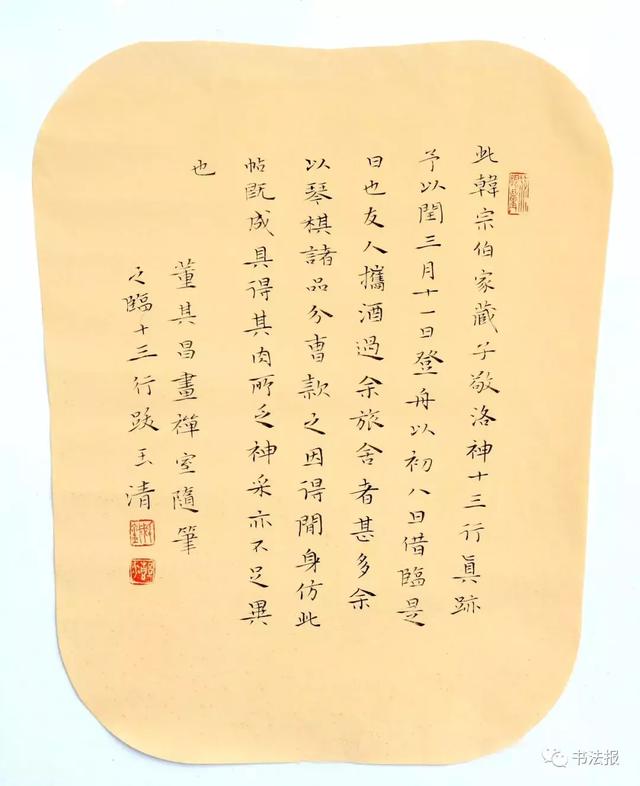 此韓宗伯家藏子敬洛神十三行眞跡
予以閏三月十一日登舟以初八日借臨是
日也友人攜酒過余旅舍者甚多余
以琴棋諸品分曹款之因得閒身仿此
帖旣成具得其肉所乏神采亦不足異
也
董其昌畫禪室隨筆
之臨十三行跋玉清
书法报